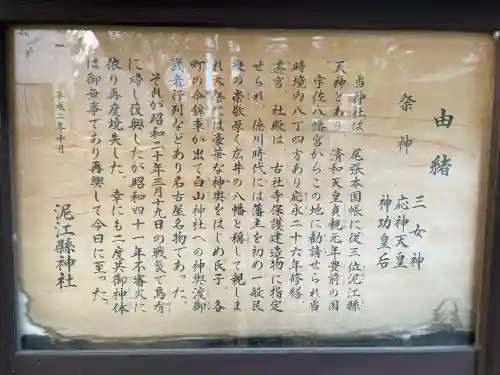 由緒
祭神
三女神
応神天皇
神功皇后
当神社は、尾張本国帳に従三位泥江縣
天神とあり、清和天皇貞観元年豊前の国
宇佐八幡宮からこの地に勧請せられ当
時境内八丁四方あり応永二十六年修繕
遷宮、社殿は、古社寺保護建造物に指定
せられ、徳川時代には藩主を初め一般民
衆の崇敬厚く広井の八幡と稱して親しま
れ大祭には豪華な神輿をはじめ氏子、各
町の傘鉾車が出て白山神社への神輿渡御
武者行列などあり名古屋名物であった。
それが昭和二十年三月十九日の戦災で烏有
に帰し復興したが昭和四十一年不審火に
依り再度焼失した。幸にも二度共御神体
は御無事であり再興して今日に至った。
平成二年十月
泥江縣神社